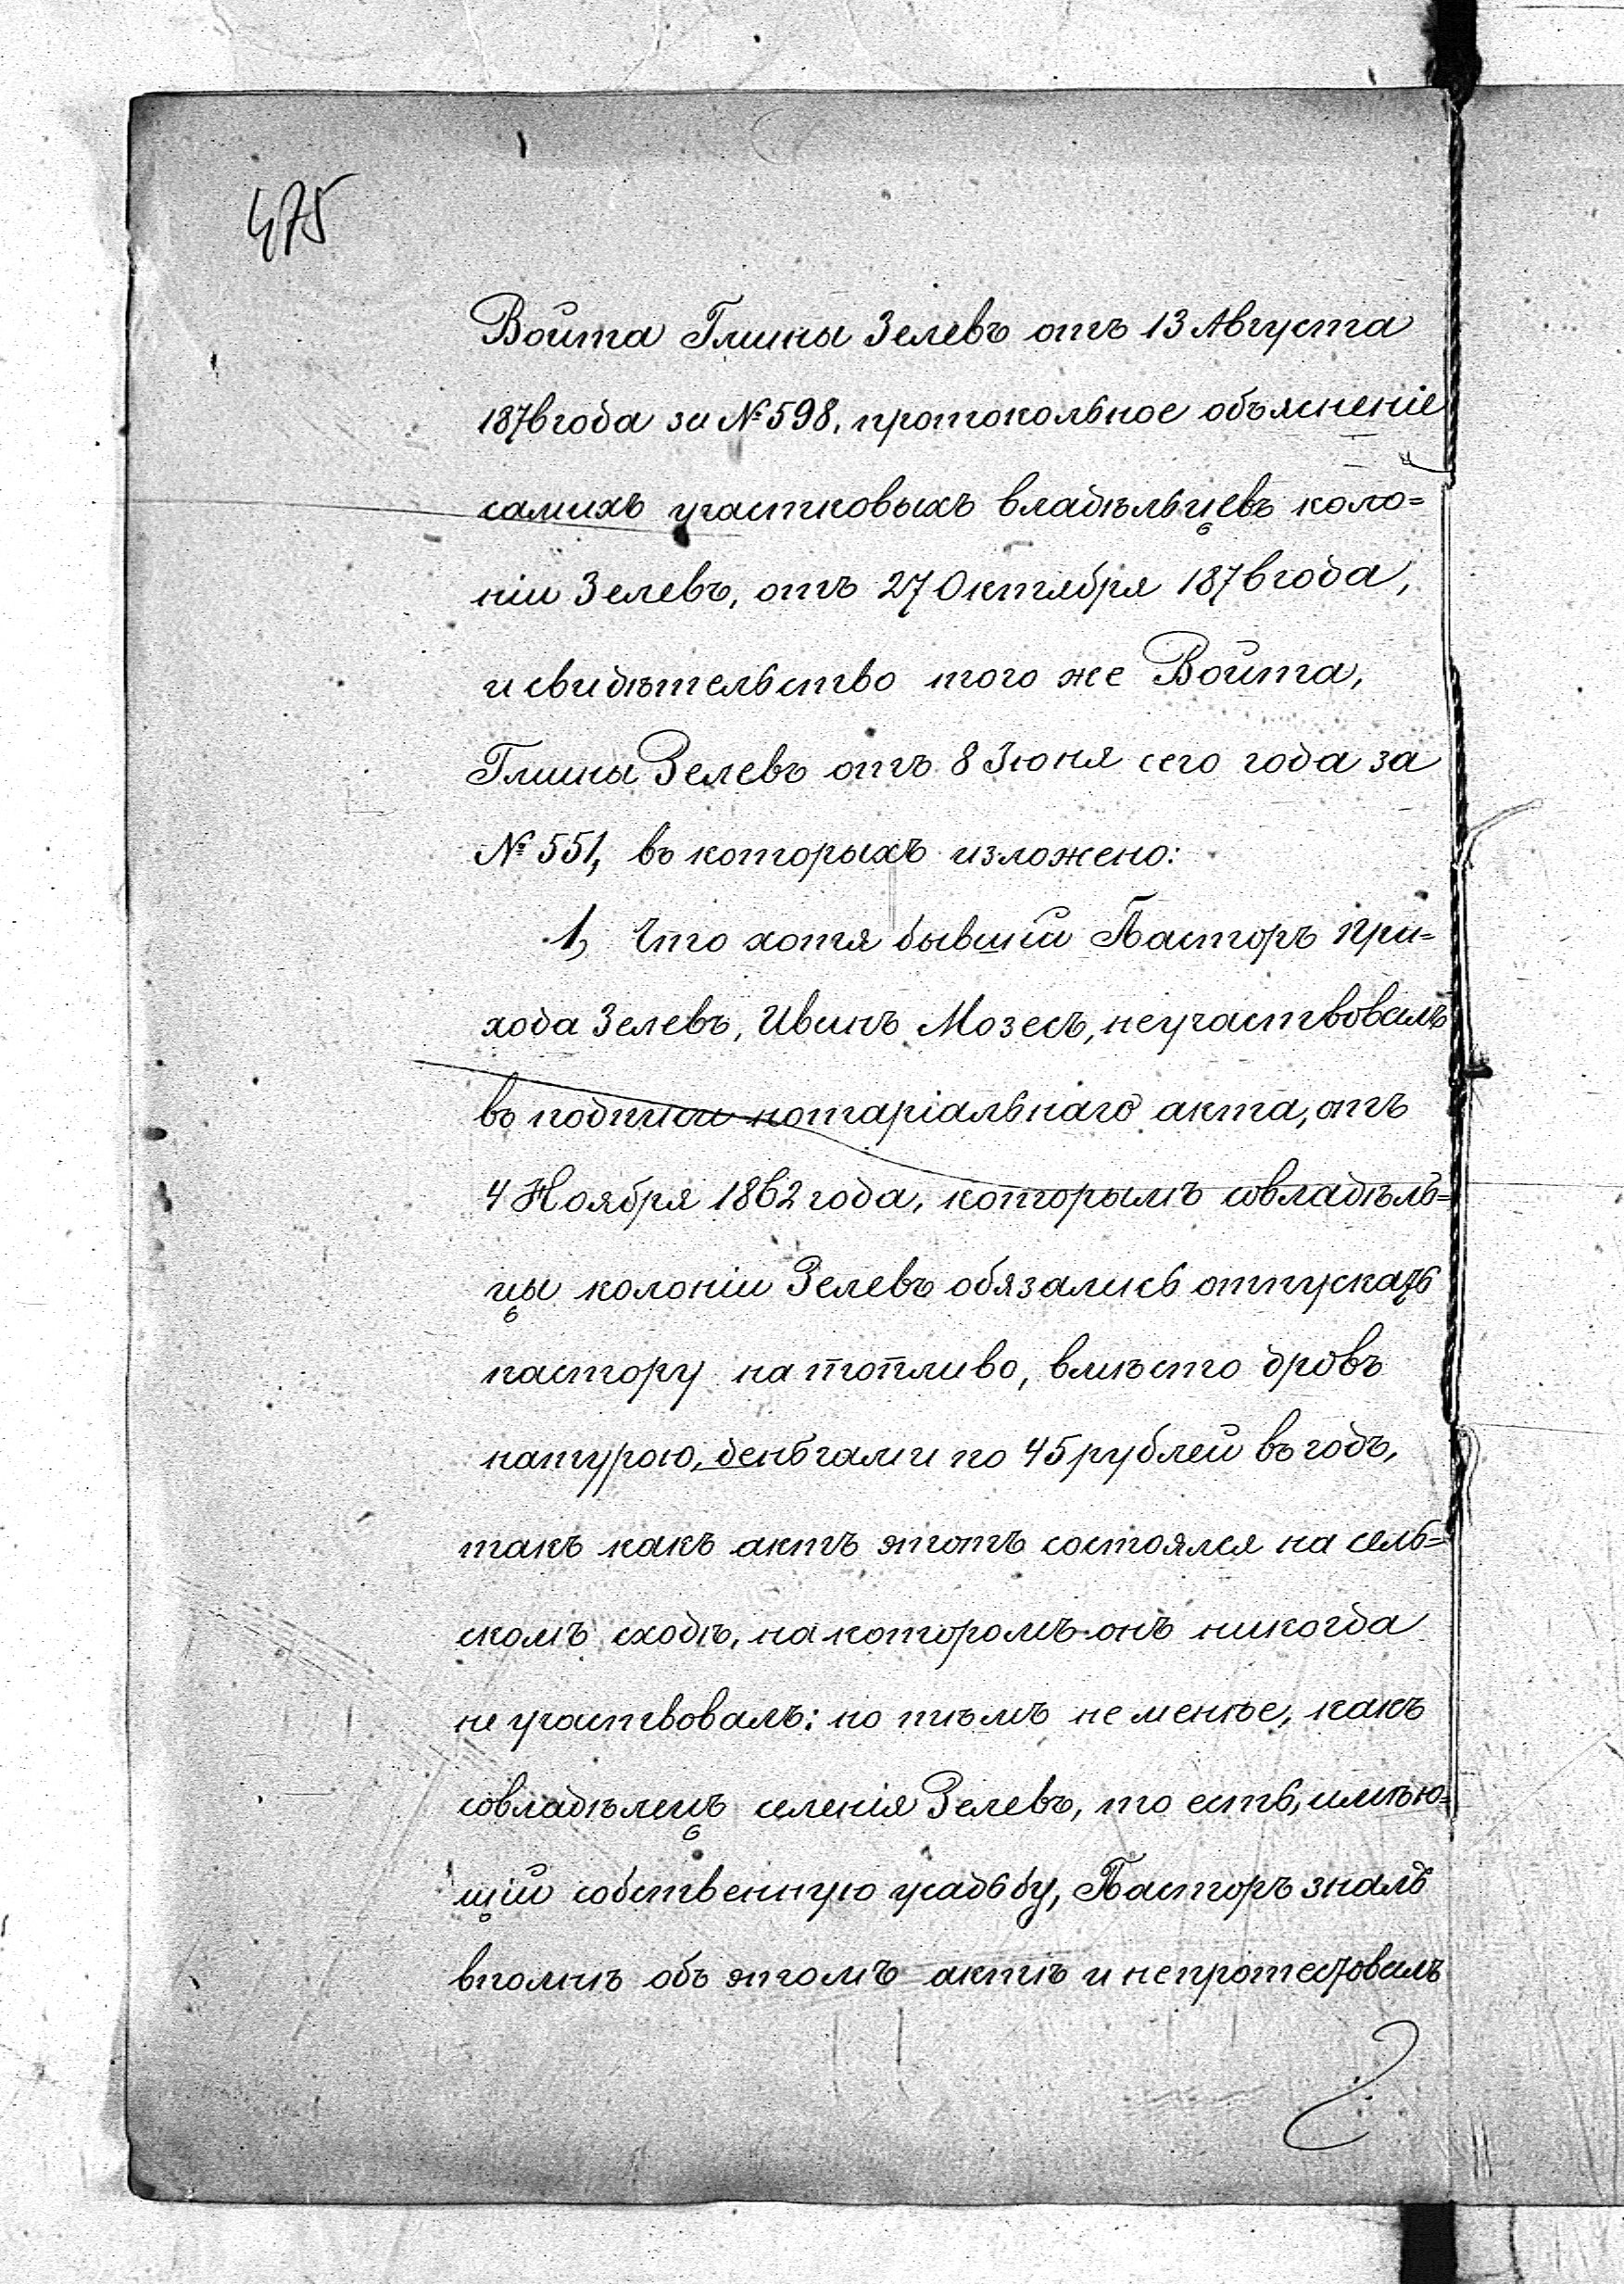 475
Войта Гмины Зелевъ отъ 13 Августа
1876 года за № 598, протокольное объясненіе
самихъ участковыхъ владѣльцевъ коло=
ніи Зелевъ, отъ 27 Октября 1876 года,
и свидѣтельство того же Войта,
Гмины Зелевъ отъ 8 Іюня сего года за
№ 551, въ которыхъ изложено:
1, Что хотя бывшій Пасторъ при=
хода Зелевъ, Иванъ Мозесъ, не участвовалъ
въ подписи нотаріальнаго акта, отъ
4 Ноября 1862 года, которымъ совладѣль=
цы колоніи Зелевъ обязались отпускать
пастору на топливо, вмѣсто дровъ
натурою, деньгами по 45 рублей въ годъ,
такъ какъ актъ этотъ состоялся на сель=
скомъ сходѣ, на которомъ онъ никогда
не участвовалъ; но тѣмъ не менѣе, какъ
совладѣлецъ селенія Зелевъ, то есть, имѣю=
щій собственную усадьбу, Пасторъ зналъ
вполнѣ объ этомъ актѣ и не протестовалъ